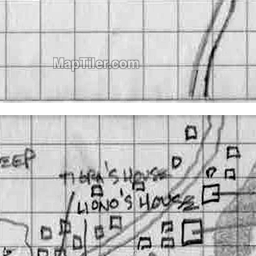 MapTiler.com
EEP
TIGRA'S HOUSE
LIONO'S HOUSE